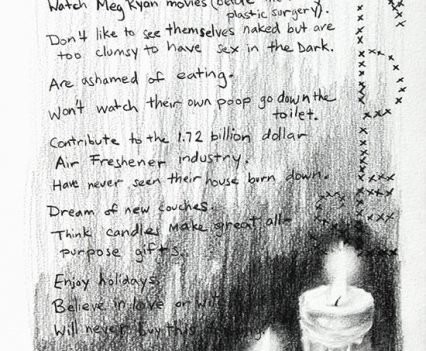 Watch Meg Ryan movies (before the
plastic surgery).
Don't like to see themselves naked but are
too clumsy to have sex in the dark.
Are ashamed of eating.
Won't watch their own poop go down the
toilet.
Contribute to the 1.72 billion dollar
Air Freshener industry.
Have never seen their house born down.
Dream of new couches.
Think candles make great all-
purpose gifts.
Enjoy holidays.
Believe in love or
Will never buy this drawing.